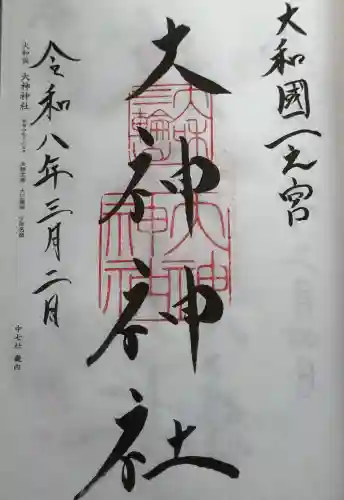 大和國一之宮
大神神社
大和
三輪
大神
神社
令和八年三月二日
大和国 大神神社
中七社 畿内